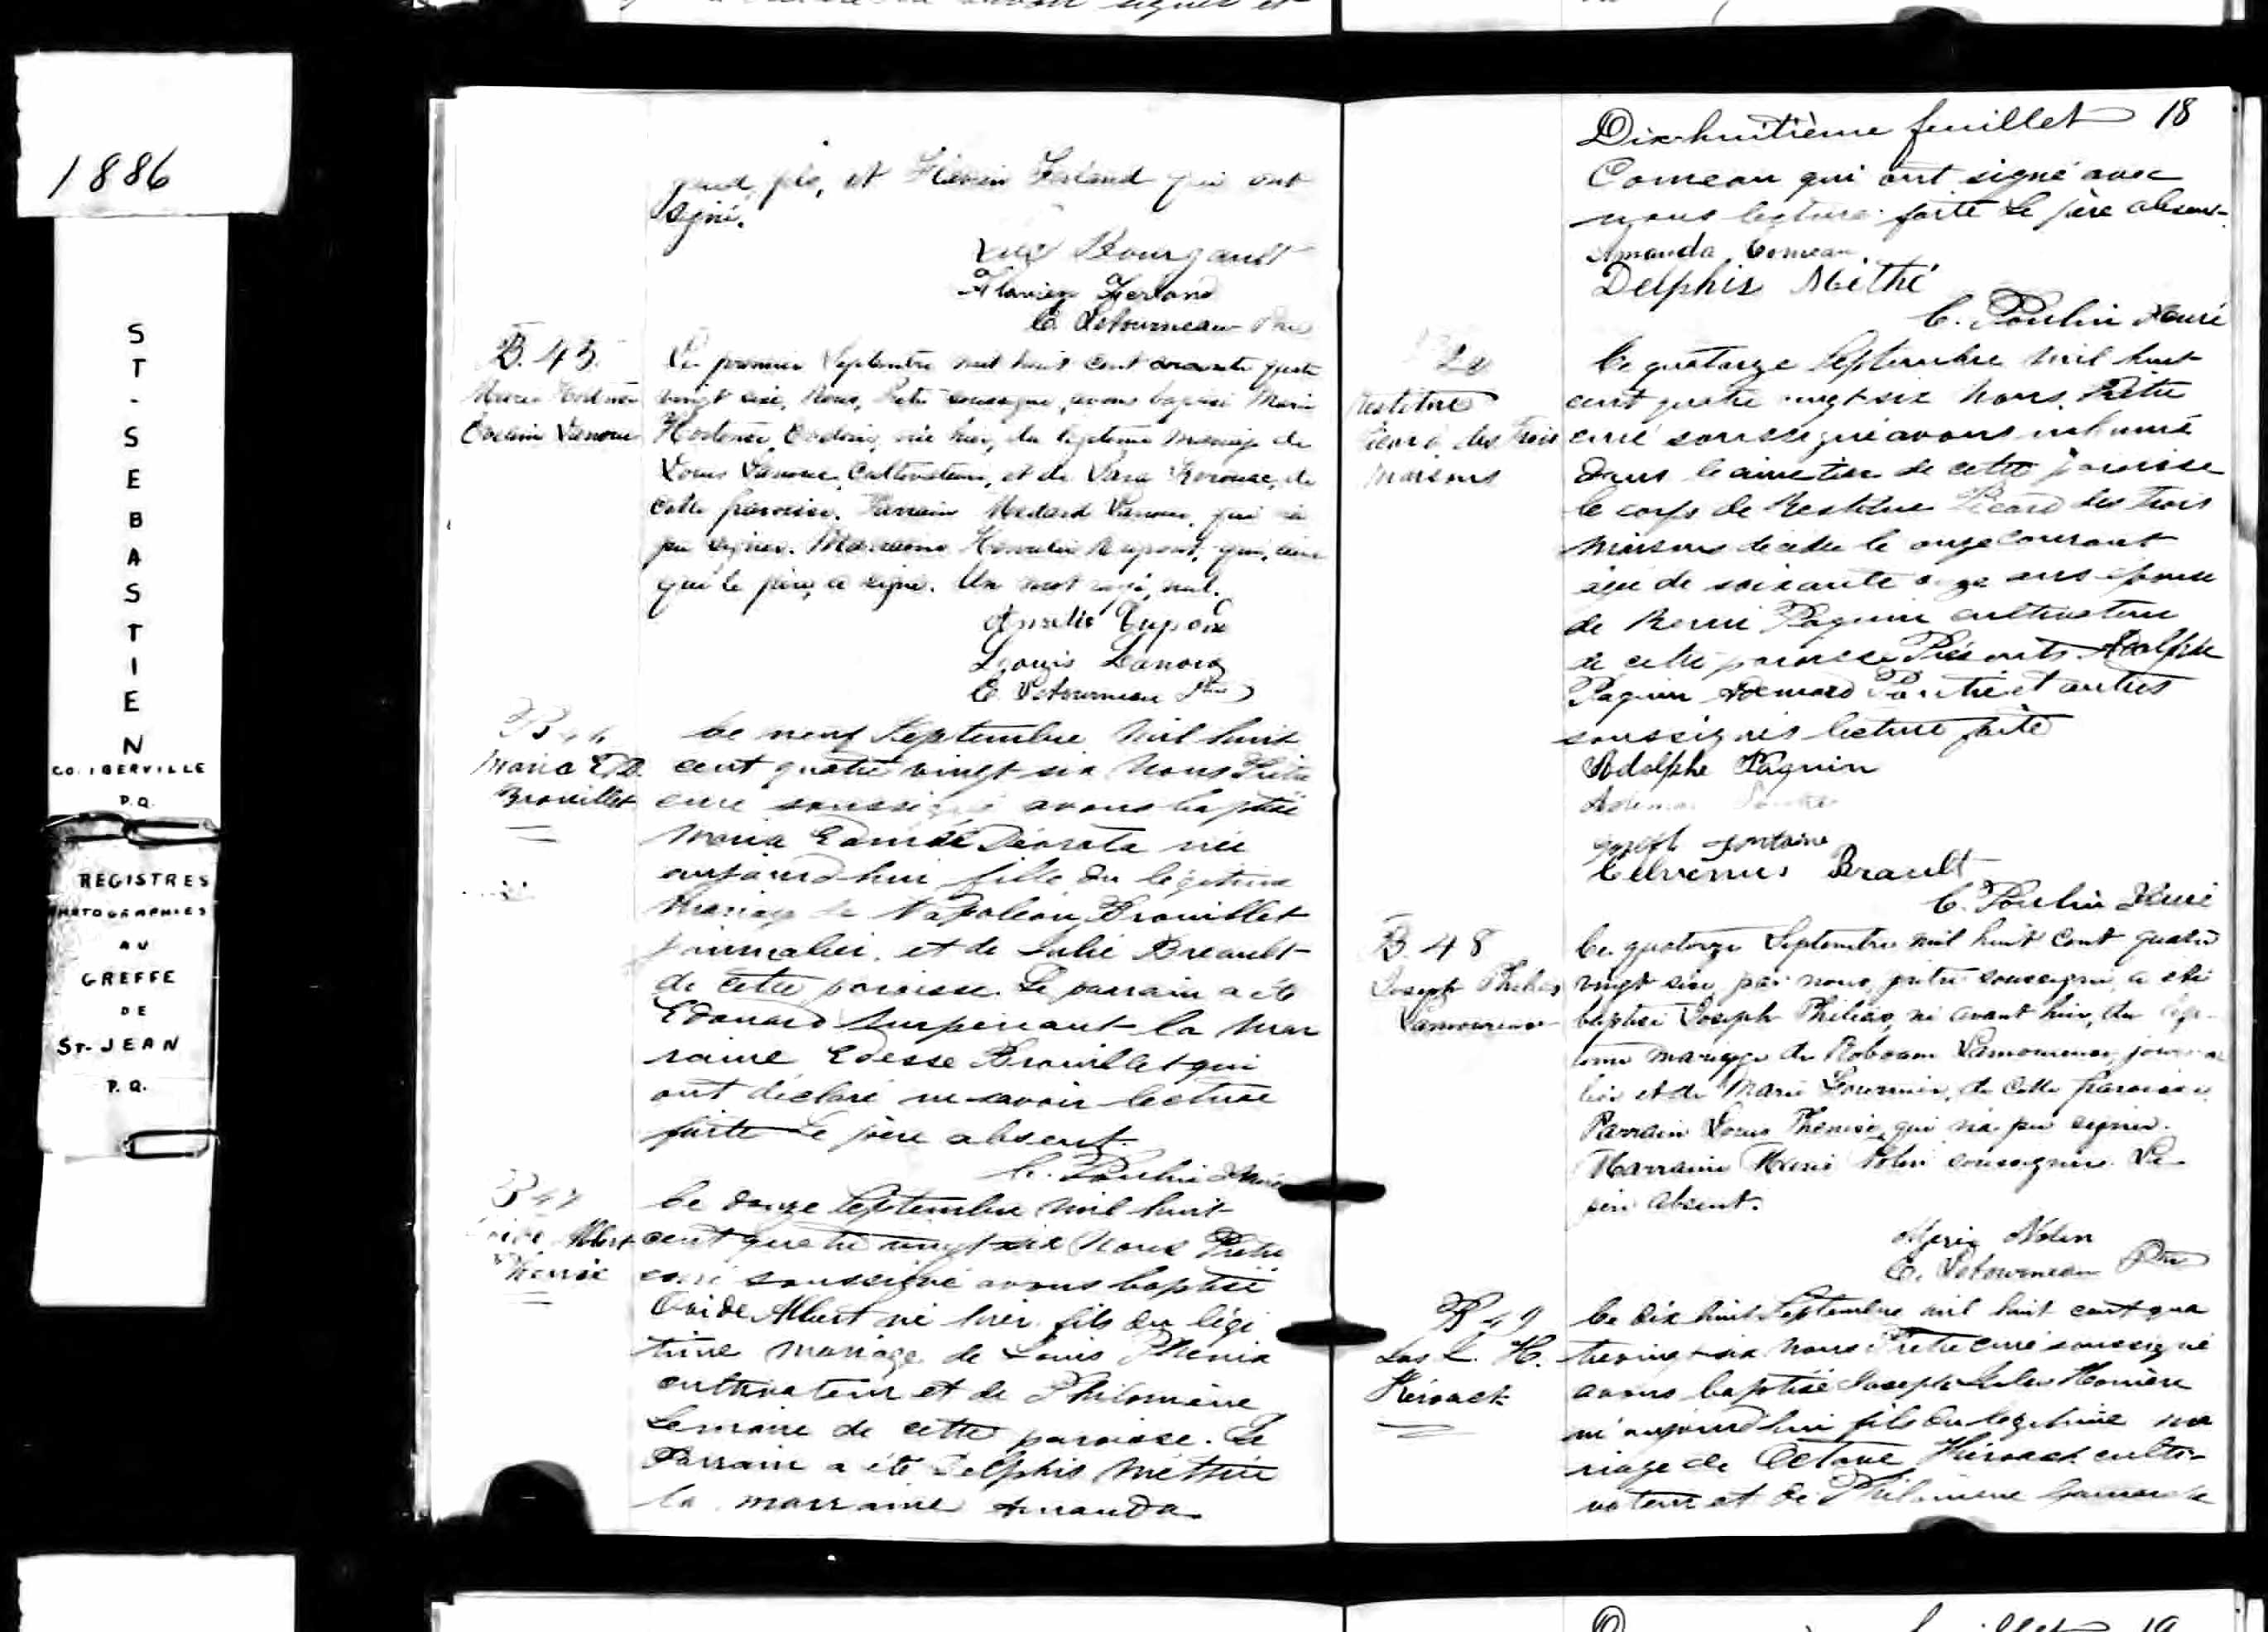 1886
ST-SEBASTIEN
CO. IBERVILLE
P.Q.
REGISTRES
PHOTOGRAPHIES
AU
GREFFE
DE
ST-JEAN
P.Q.
fils, et Flavien Ferland qui ont
signé.
Luc Bourgault
Flavien Ferland
E. Letourneau Ptre
B. 45.
Marie Hortense
Lanoue
Le premier Septembre mil huit cent soixante quatre
vingt six, Nous, Prêtre soussigné, avons baptisé Marie
Hortense née hier, du légitime mariage de
Louis Lanoue, Cultivateur, et de Sara Kerouac, de
cette paroisse. Parrain Médard Lanoue, qui n'a
pu signer. Marraine Dupont, qui, ainsi
que le père, a signé. Un mot rayé, nul.
Dupont
Louis Lanoue
E. Letourneau Ptre
B 46
Maria E.D.
Brouillet
Le neuf Septembre mil huit
cent quatre vingt six Nous Prêtre
curé soussigné avons baptisé
Maria née
aujourd'hui fille du légitime
mariage de Napoléon Brouillet
journalier, et de Julie Breault
de cette paroisse. Le parrain a été
Edouard Surprenant la mar
raine Edesse Brouillet qui
ont déclaré ne savoir lecture
faite Le père absent.
C. Poulin Curé
B 47
Ovide Albert
Le douze Septembre mil huit
cent quatre vingt six Nous Prêtre
curé soussigné avons baptisé
Ovide Albert né hier fils du légi
time mariage de Louis Phenix
cultivateur et de Philomène
Lemaire de cette paroisse. Le
Parrain a été Delphis Methée
la marraine Amanda
Dix-huitième feuillet 18
Comeau qui ont signé avec
nous lecture faite Le père absent.
Amanda Comeau
Delphis Méthé
C. Poulin Curé
Restitue
Picard des Trois
Maisons
Le quatorze Septembre mil huit
cent quatre vingt six Nous Prêtre
curé soussigné avons inhumé
dans le cimetière de cette paroisse
le corps de Restitue Picard des Trois
Maisons décédée le onze courant
agée de soixante onze ans épouse
de Remi Paquin cultivateur
de cette paroisse Présents Adolphe
Paquin et autres
soussignés lecture faite
Adolphe Paquin
Joseph Fontaine
Brault
C. Poulin Curé
B. 48
Joseph Philias
Lamoureux
Le quatorze Septembre mil huit cent quatre
vingt six, par nous, prêtre soussigné, a été
baptisé Joseph Philias, né avant hier, du légi-
time mariage de Roboam Lamoureux, journa
lier et de Marie Fournier, de cette paroisse.
Parrain Louis qui n'a pu signer.
Marraine Marie Nolin soussignée. Le
père absent.
Marie Nolin
E. Letourneau Ptre
B 49
Jos J. H.
Kérouack
Le dix huit Septembre mil huit cent qua
tre vingt six Nous Prêtre curé soussigné
avons baptisé Joseph Jules
né aujourd'hui fils du légitime ma
riage de Octave Kérouack culti-
vateur et de Philomène